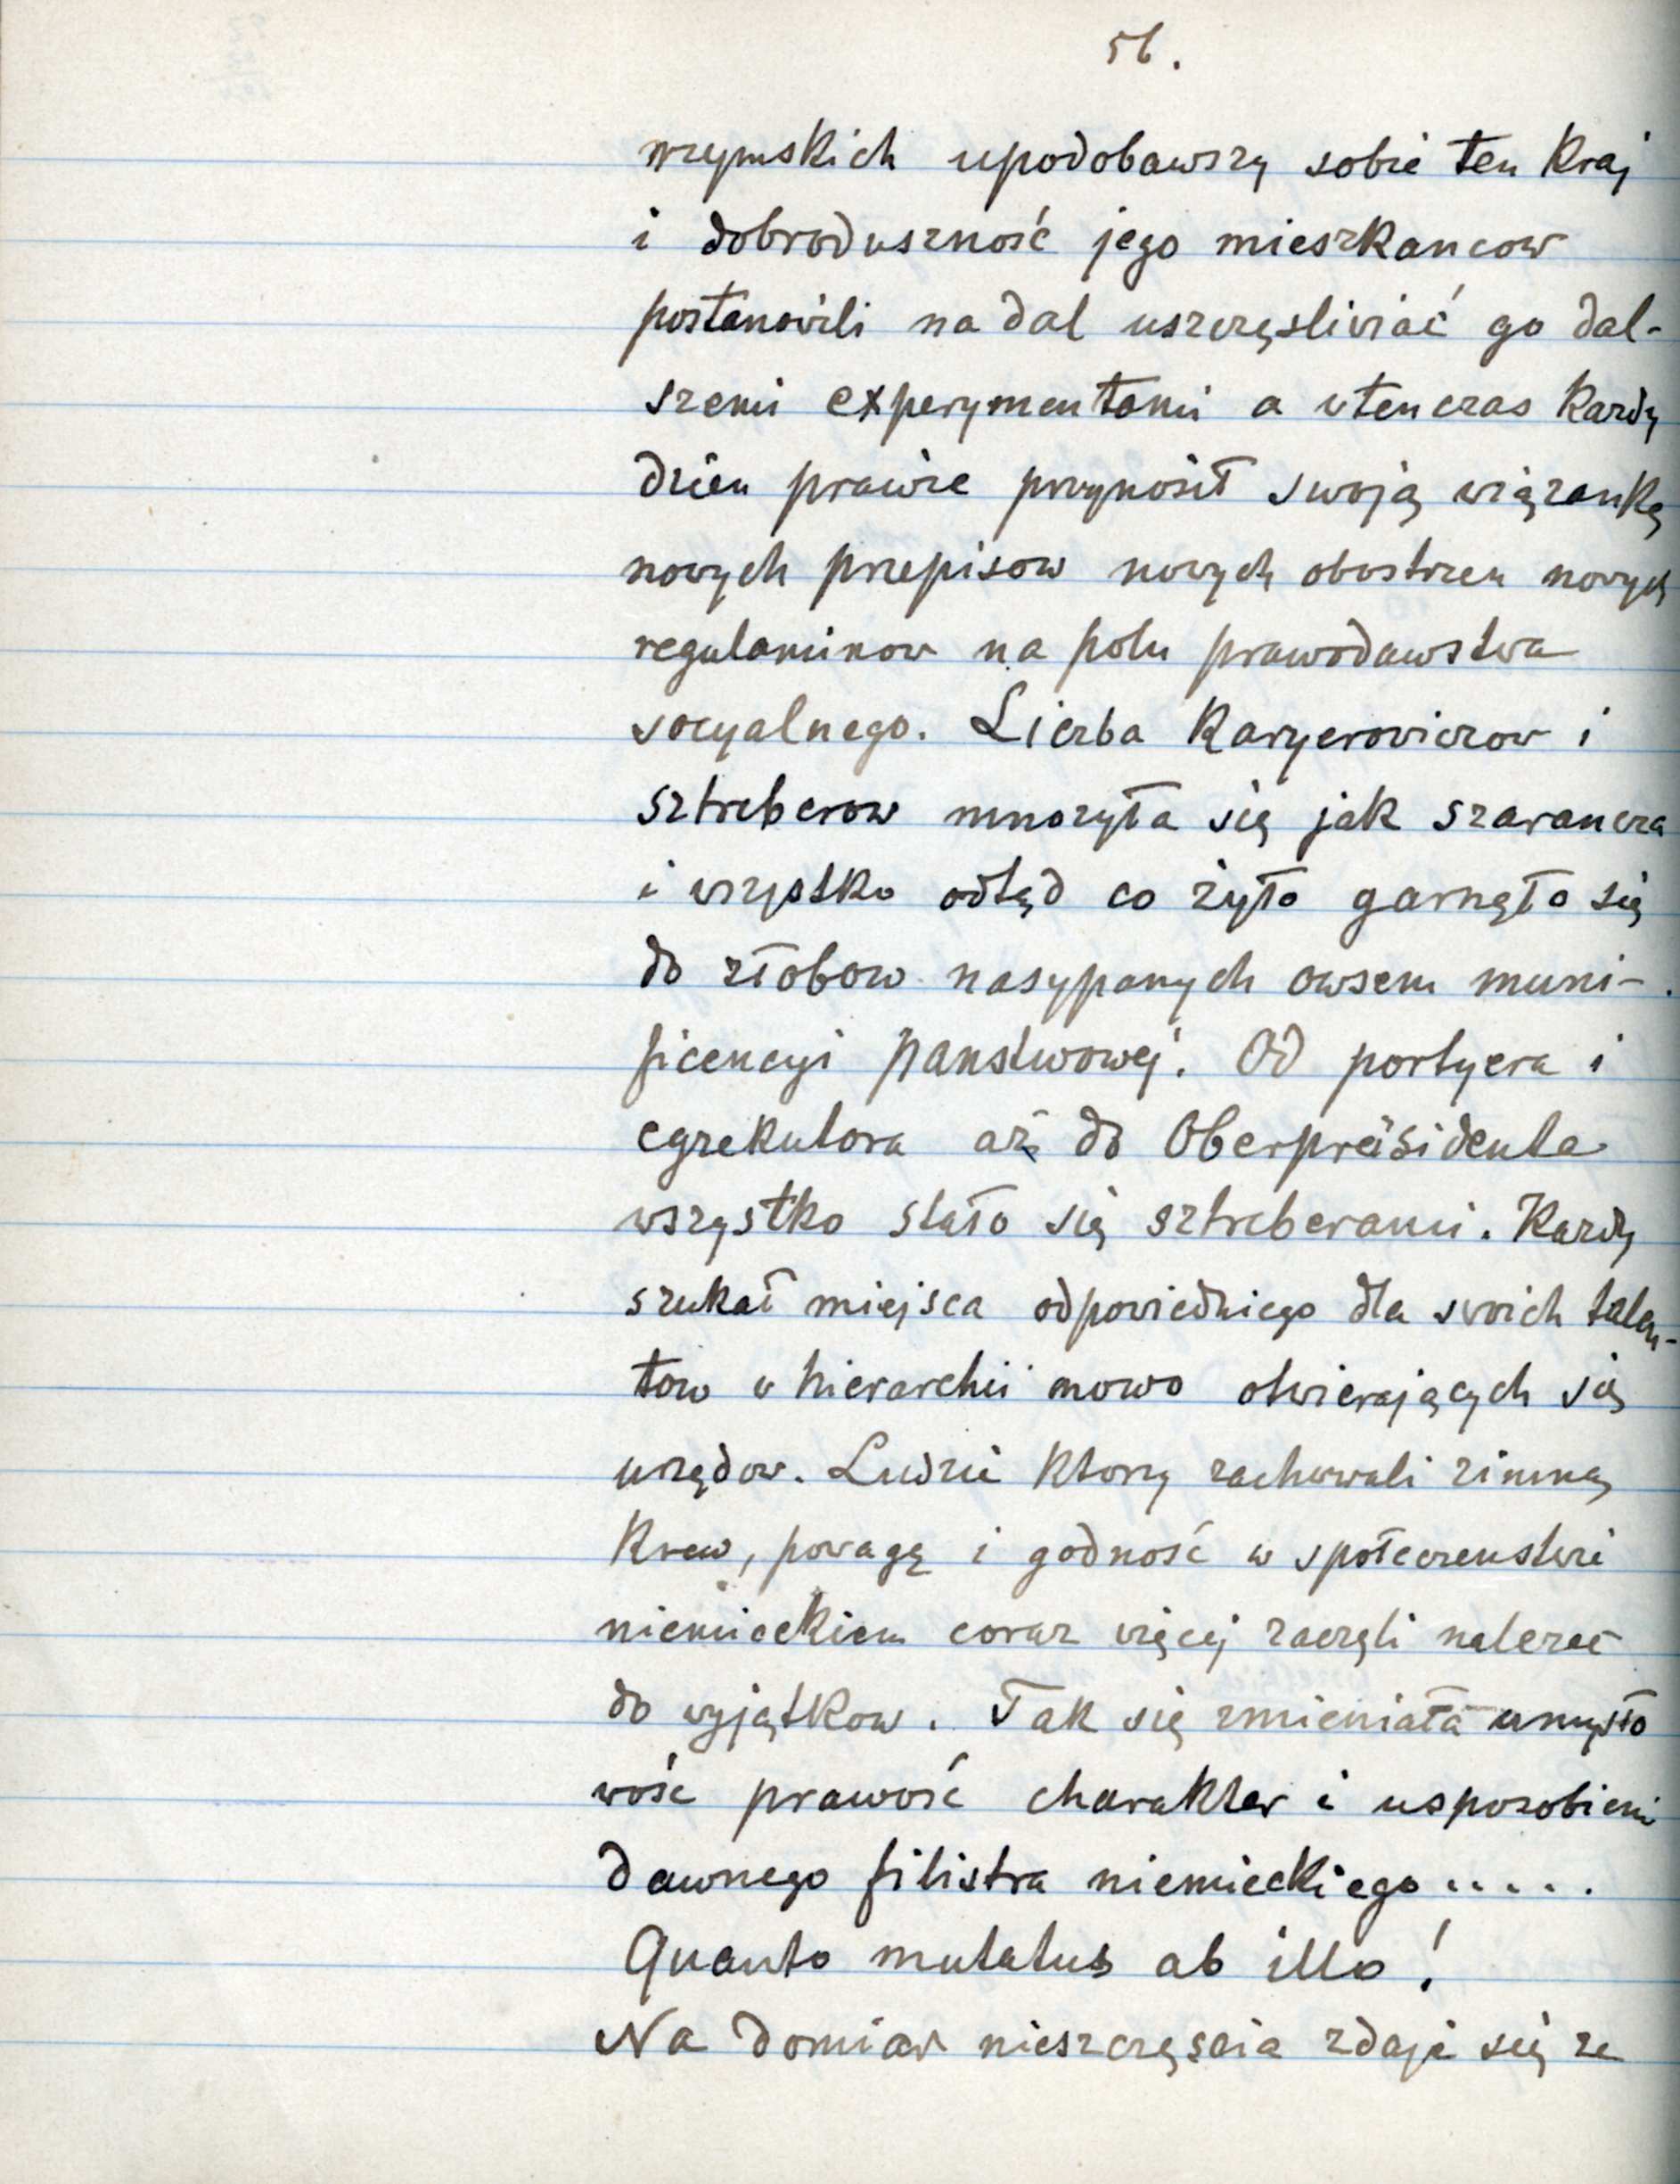 56.
rzymskich upodobawszy sobie ten kraj
i dobroduszność jego mieszkancow
postanowili na dal uszczęsliwiać go dal-
szemi experymentami a wtenczas kazdy
dzien prawie przynosił swoją wiązankę
nowych przepisow nowych obostrzen nowych
regulaminow na polu prawodawstwa
socyalnego. Liczba karyerowiczow i
sztreberow mnozyła się jak szarancza
i wszystko odtąd co żyło garnęło się
do złobow nasypanych owsem muni-
ficencyi panstwowej. Od portyera i
egzekutora aż do Oberpräsidenta
wszystko stało się sztreberami. Kazdy
szukał miejsca odpowiedniego dla swoich talen-
tow w hierarchii nowo otwierających się
urzędow. Ludzie ktorzy zachowali zimną
krew, powagę i godność w społeczenstwie
niemieckiem coraz więcej zaczęli nalezeć
do wyjątkow. Tak się zmieniała umysło
wość prawość charakter i usposobieni
dawnego filistra niemieckiego .....
Quanto mutatus ab illo!
Na domiar nieszczęscia zdaje się ze